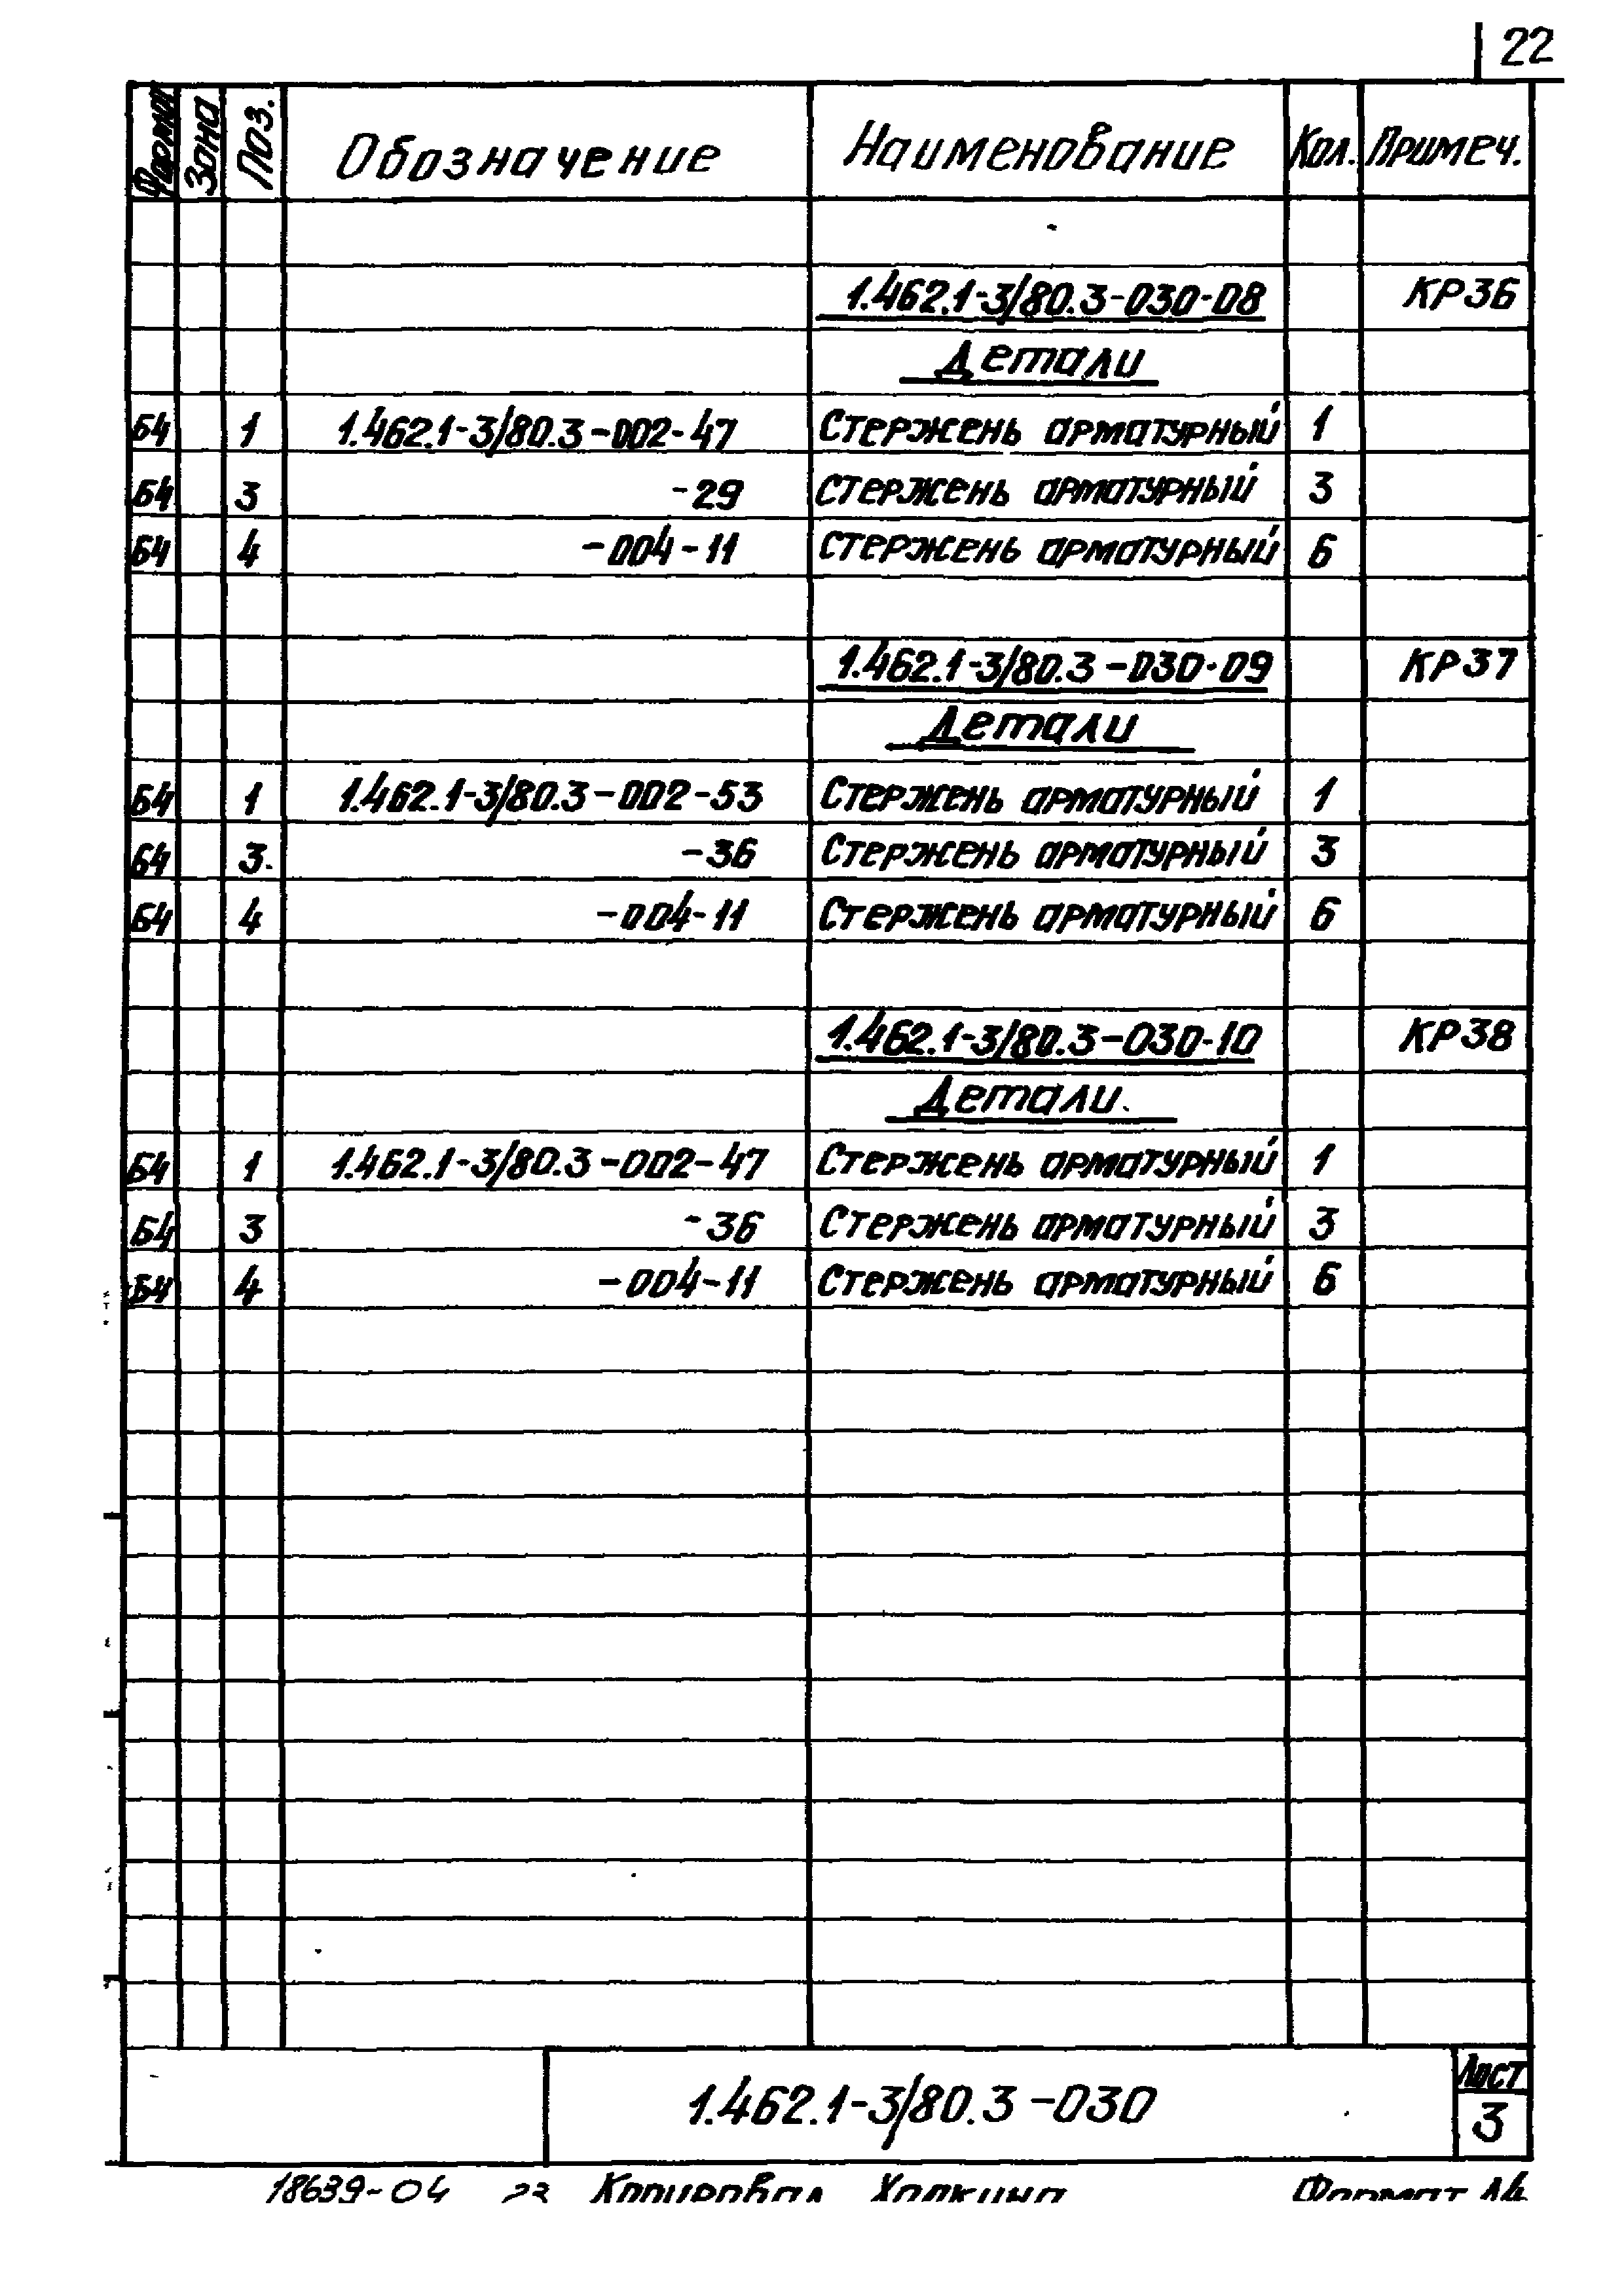 22
Формат Зона Поз. Обозначение Наименование Кол. Примеч.
1.462.1-3/80.3-030-08 КР36
Детали
Б4 1 1.462.1-3/80.3-002-47 Стержень арматурный 1
Б4 3 -29 Стержень арматурный 3
Б4 4 -004-11 Стержень арматурный 6
1.462.1-3/80.3-030-09 КР37
Детали
Б4 1 1.462.1-3/80.3-002-53 Стержень арматурный 1
Б4 3 -36 Стержень арматурный 3
Б4 4 -004-11 Стержень арматурный 6
1.462.1-3/80.3-030-10 КР38
Детали
Б4 1 1.462.1-3/80.3-002-47 Стержень арматурный 1
Б4 3 -36 Стержень арматурный 3
Б4 4 -004-11 Стержень арматурный 6
1.462.1-3/80.3-030
Лист
3
18639-04 23 Копировал Формат А4